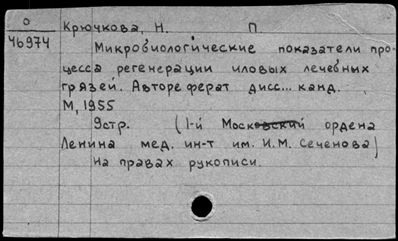 О
46974
Крючкова, Н. П.
Микробиологические показатели про-
цесса регенерации иловых лечебных
грязей. Автореферат дисс... канд.
М, 1955
9стр. (1-й Московский ордена
Ленина мед. ин-т им. И.М. Сеченова)
На правах рукописи.